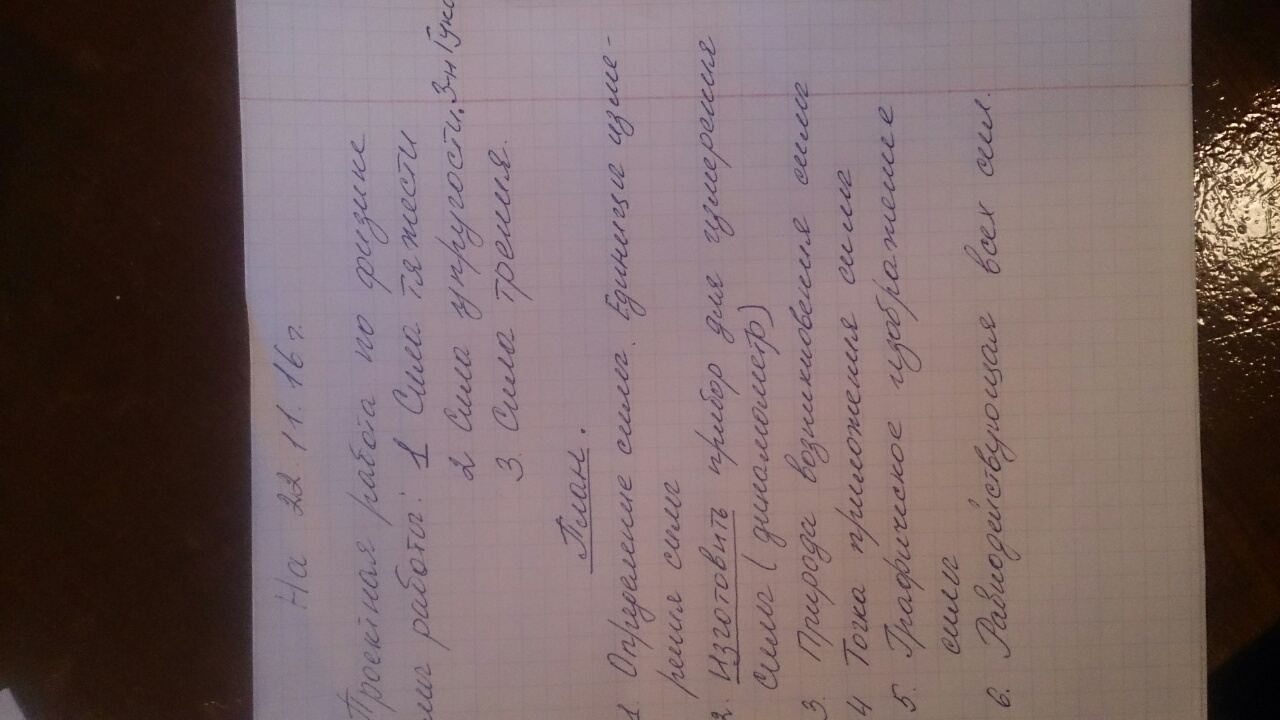 На 22.11.16 г.
Проектная работа по физике
работы: 1 Сила тяжести
2 Сила упругости. З-н Гука
3. Сила трения.
План.
1. Определение силы. Единицы изме-
рения силы
2. Изготовить прибор для измерения
силы (динамометр)
3. Природа возникновения силы
4 Точка приложения силы
5. Графическое изображение
силы
6. Равнодействующая всех сил.